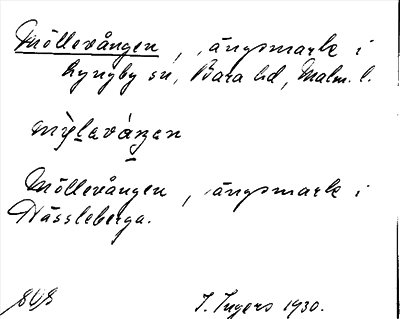 Möllevången, ängsmark i
Lyngby sn, Bara hd, Malm. l.
Möllevången, ängsmark i
Nässleberga.
I. Ingers 1930.